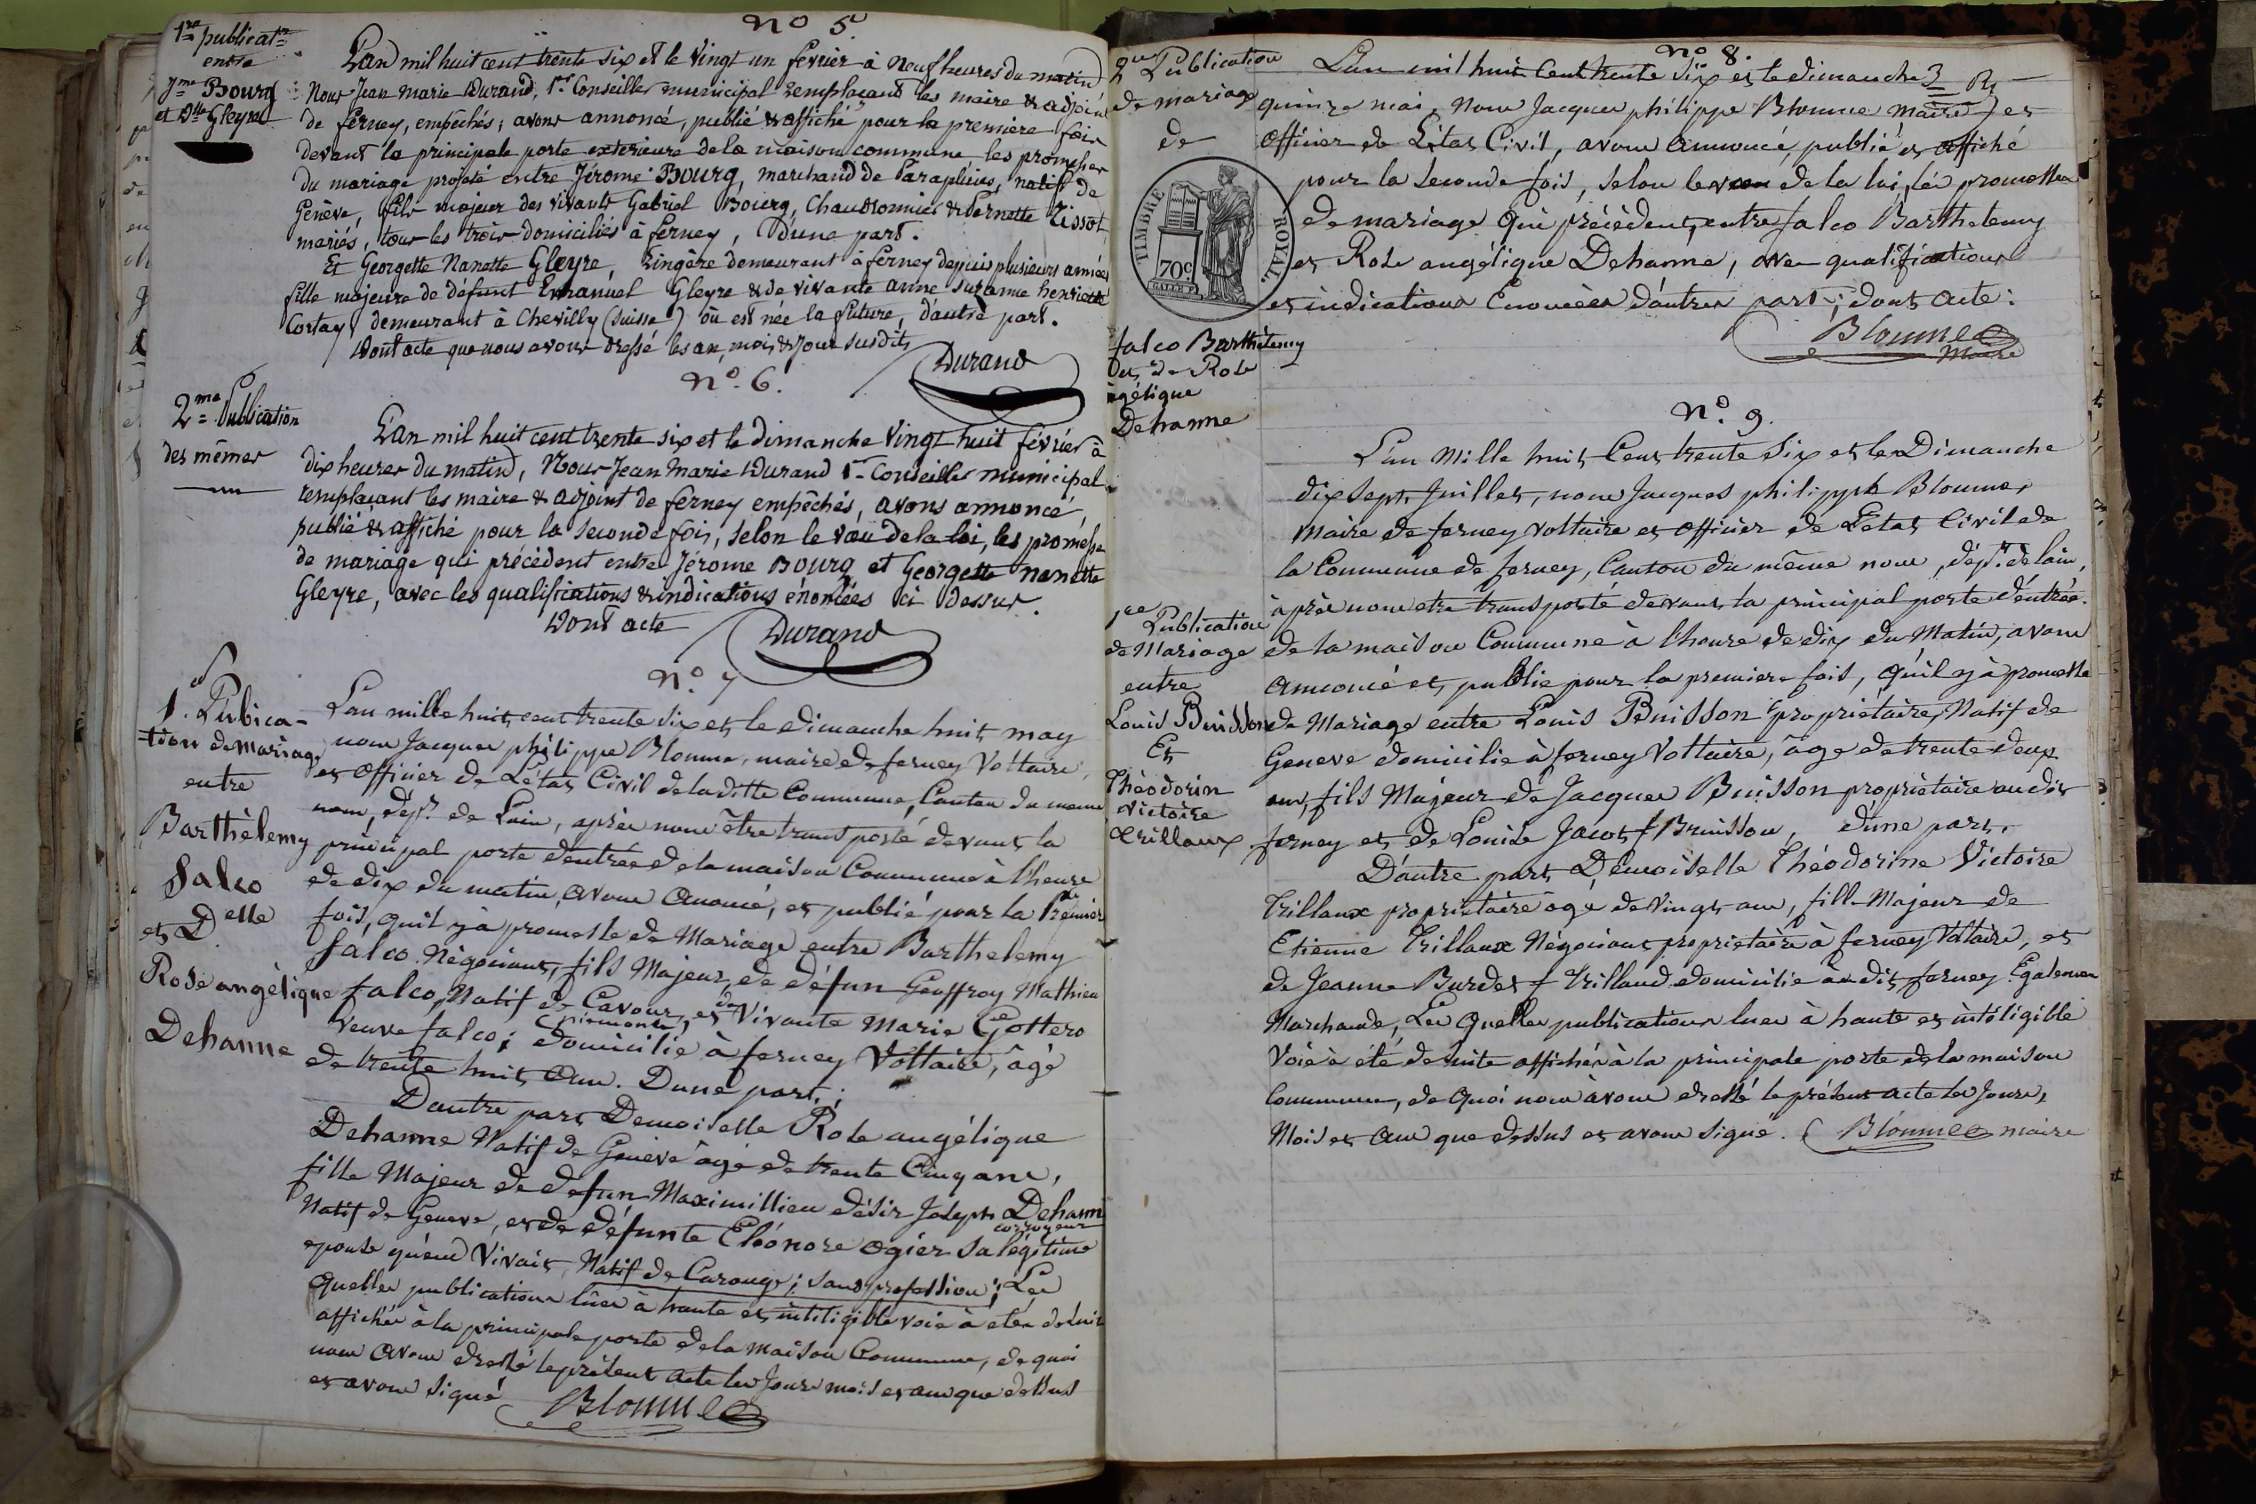 No 5.
1re publicatn
entre
Jme Bourg
et Dlle Gleyre
L'an mil huit cent trente six et le vingt un février à neuf heures du matin,
Nous Jean Marie Durand, 1er Conseiller municipal remplaçant les maire & adjoint
de ferney, empêchés; avons annoncé, publié & affiché pour la premiere fois
devant la principale porte exterieure de la maison commune les promesses
du mariage projeté entre Jérome Bourg, marchand de Parapluies, natif de
Genève, fils majeur des vivants Gabriel Bourg, Chaudronnier & Pernette Tissot,
mariés, tous les trois domiciliés à ferney, d'une part.
Et Georgette Nanette Gleyre, lingère demeurant à ferney depuis plusieurs années
fille majeure de défunt Emanuel Gleyre & de vivante anne suzanne henriette
Cortay demeurant à Chevilly (suisse) où est née la future, d'autre part.
Dont acte que nous avons dressé les an, mois & jour susdits
Durand
No. 6.
2me Publication
des mêmes
L'an mil huit cent trente six et le dimanche vingt huit février à
dix heures du matin, Nous Jean Marie Durand 1er Conseiller municipal
remplaçant les maire & adjoint de ferney empêchés, avons annoncé,
publié & affiché pour la seconde fois, selon le vœu de la loi, les promesses
de mariage qui précèdent entre Jérome Bourg et Georgette nanette
Gleyre, avec les qualifications & indications énoncées ci dessus.
Dont acte
Durand
No. 7
1ere Publica-
tion de mariage
entre
Barthèlemy
falco
et Delle
Rose angèlique
Dehanne
L'an mille huit cent trente six et le dimanche huit may
nous Jacques philippe Blonne, maire de ferney Voltaire,
et officier de L'état Civil de laditte Commune, Canton du même
nom, dépt. de L'ain, après nous être transporté devant la
principal porte dentrée de la maison Commune à l'heure
de dix du matin, avons anoncé, et publié pour la Premiere
fois, qu'il y à promesse de Mariage entre Barthelemy
falco Négociant, fils Majeur, de défun Geoffroy Mathieu
falco, Natif de Cavour, et de Vivante Marie Gottero
piemonte,
veuve falco; domicilié à ferney Voltaire, âgé
de trente huit ans. Dune part;
Dautre part Demoiselle Rose angélique
Dehanne Natif de Genève âgé de trente Cinq ans,
fille Majeur de défun Maximillien désir Joseph Dehanne
corroyeur
Natif de Geneve, et de défunte Eléonore ogier sa légitime
epouse quend Vivait, Natif de Carouge; sans profession; Les
quelles publications lües à haute et intiligible voie à etée desuite
affichée à la principale porte de la maison Commune, de quoi
nous avons dressé le présent acte les Jours mois et an que dessus
et avons signé
Blonne
No 8.
2me Publication
de mariage
de
TIMBRE ROYAL
70c.
falco Barthélemy
Det de Rose
angélique
Dehanne
L'an mil huit Cent trente six et le dimanche
quinze mai, nous Jacques philippe Blonne maire et
officier de L'état Civil, avons annoncé, publié et affiché
pour la seconde fois, selon le vœu de la loi, les promesses
de mariage qui précèdent, entre falco Barthelemy
et Rose angélique Dehanne, avec qualifications
et indications Enoncées d'autres part; dont acte:
Blonne
Maire
No. 9.
1ere Publication
de Mariage
entre
Louis Buisson
Et
Théodorin
victoire
trillaux
L'an Mille huit Cent trente six et le Dimanche
dix sept Juillet, nous Jacques philippe Blonne,
Maire de ferney Voltaire et officier de L'état Civil de
la Commune de ferney, Canton du même nom, dépt. de lain,
àprès nous etre transporté devant la principal porte d'entrée
de la maison Commune à l'heure de dix du Matin, avons
annoncé et publié pour la premiere fois, qu'il y à promesse
de Mariage entre Louis Buisson propriétaire, Natif de
Geneve domicilié à ferney Voltaire, âgé de trente deux
ans, fils Majeur de Jacques Buisson propriètaire au dit
ferney et de Louise Jacot f Bruisson, d'une part.
D'autre part Demoiselle Théodorine Victoire
Trillaux propriétaire âgé de vingt ans, fille Majeur de
Etienne Trillaux Négociant propriétaire à ferney Voltaire, et
de Jeanne Burdet f Trillaud domicilié au dit ferney Egalement
Marchande, Les quelles publications lues à haute et intéligible
Voie à été de suite affichée à la principale porte de la maison
Commune, de quoi nous àvons dressé le présent acte les Jours,
Mois et an que dessus et avons signé. Blonne maire